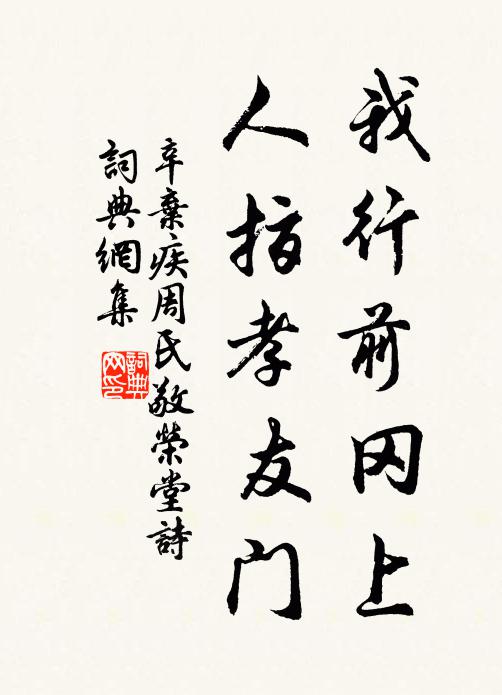 我行前冈上
人指孝友门
辛棄疾周氏敬榮堂詩
詞典網集
詞典网印